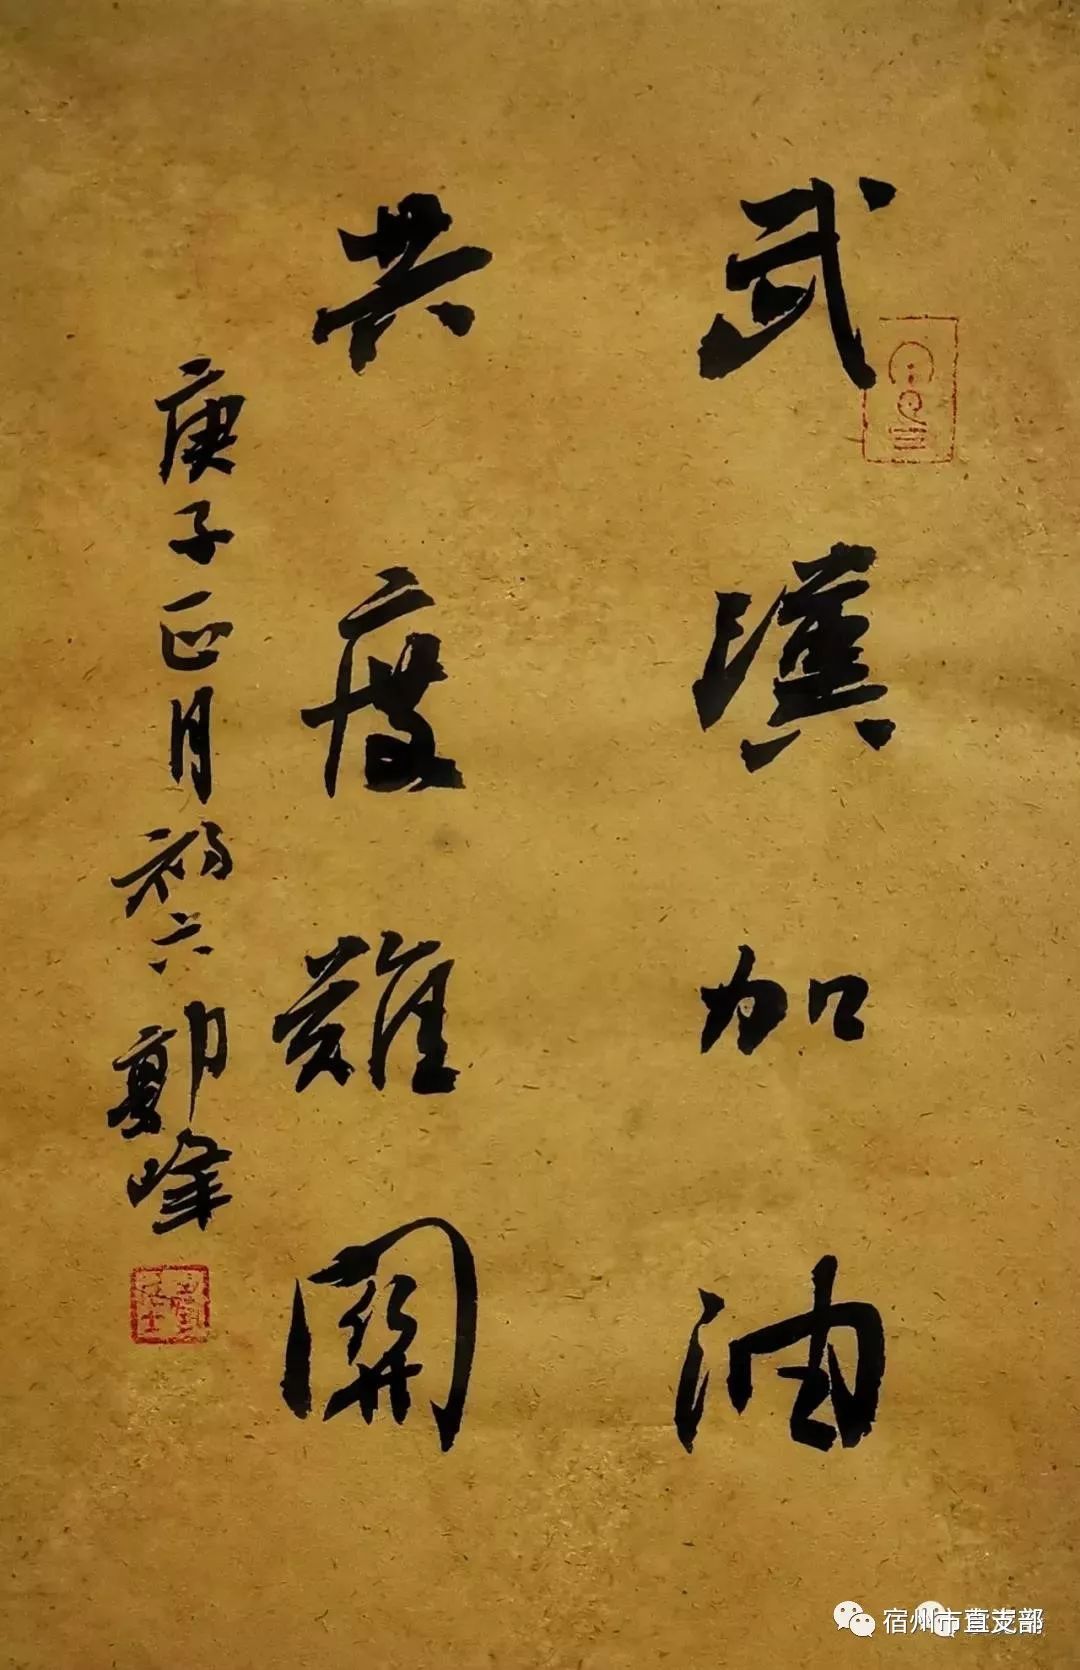 武漢加油
共度難關
庚子正月初六 郭峰
宿州市直支部